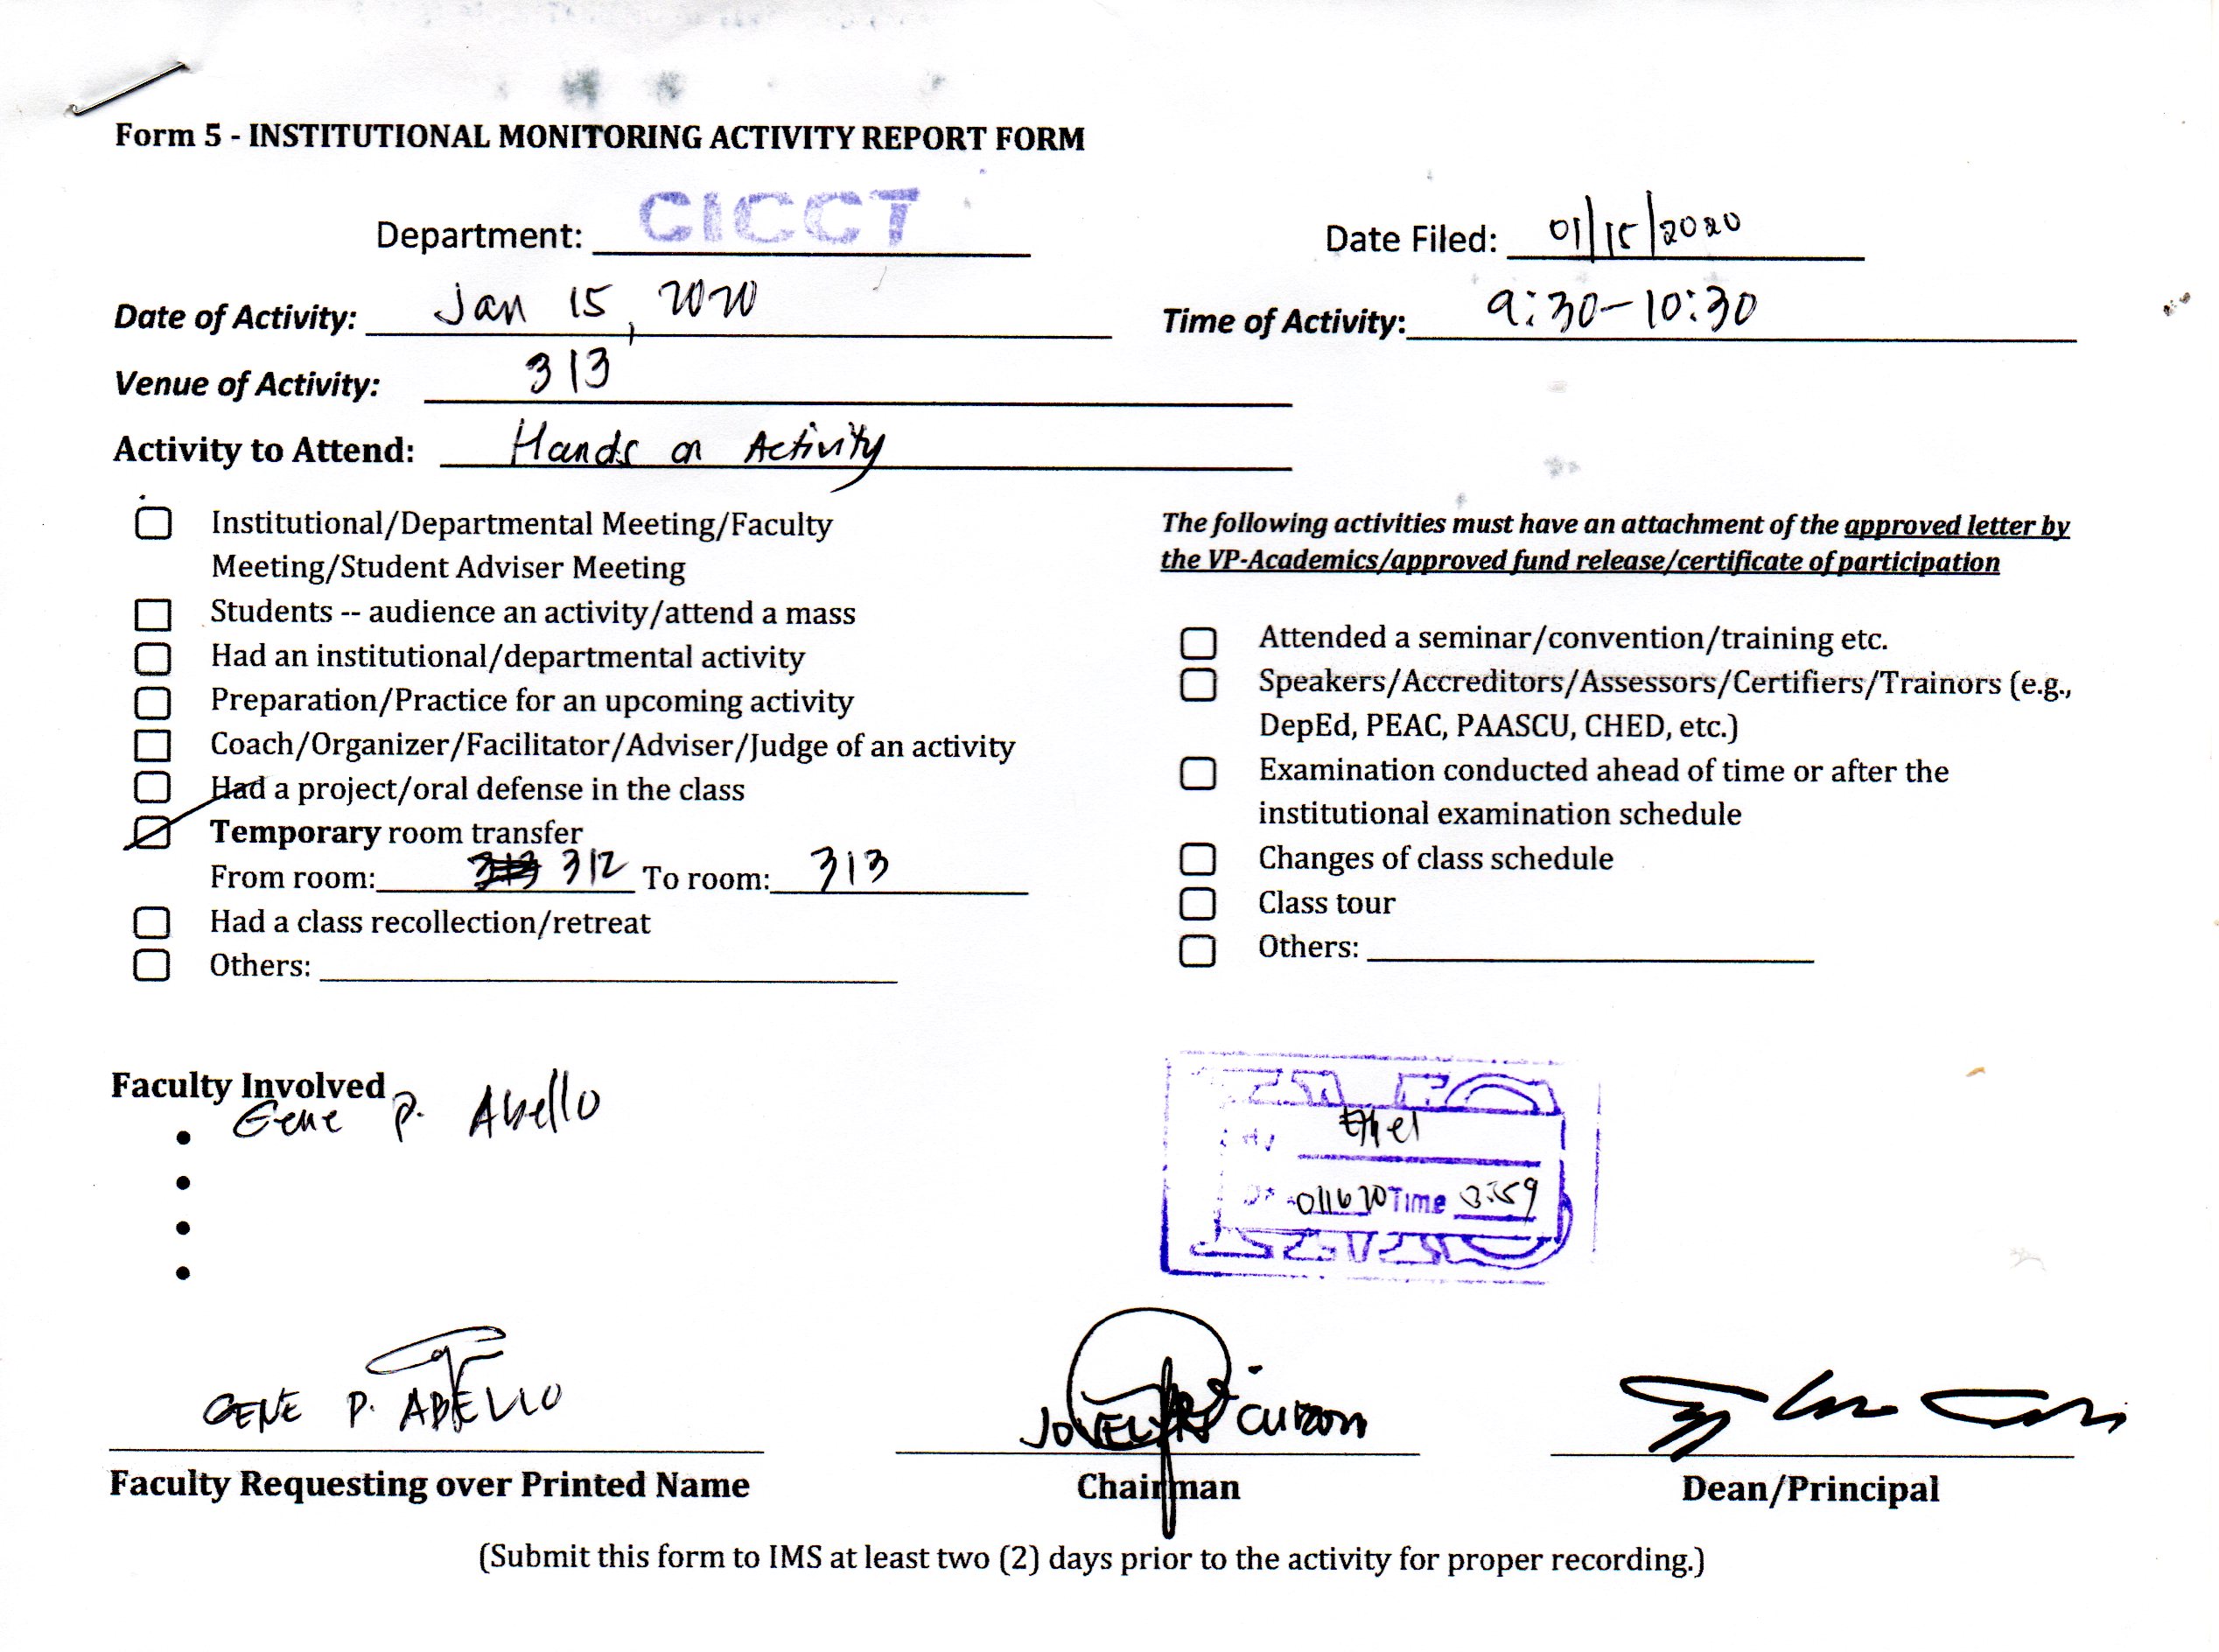 Form 5 - INSTITUTIONAL MONITORING ACTIVITY REPORT FORM
Department: CICCT Date Filed: 01/15/2020
Date of Activity: Jan 15, 2020 Time of Activity: 9:30-10:30
Venue of Activity: 313
Activity to Attend: Hands on Activity
Institutional/Departmental Meeting/Faculty
Meeting/Student Adviser Meeting
Students -- audience an activity/attend a mass
Had an institutional/departmental activity
Preparation/Practice for an upcoming activity
Coach/Organizer/Facilitator/Adviser/Judge of an activity
Had a project/oral defense in the class
Temporary room transfer
From room: 312 To room: 313
Had a class recollection/retreat
Others:
The following activities must have an attachment of the approved letter by
the VP-Academics/approved fund release/certificate of participation
Attended a seminar/convention/training etc.
Speakers/Accreditors/Assessors/Certifiers/Trainors (e.g.,
DepEd, PEAC, PAASCU, CHED, etc.)
Examination conducted ahead of time or after the
institutional examination schedule
Changes of class schedule
Class tour
Others:
Faculty Involved
Gene P. Abello
Ethel
011620 Time 3:59
GENE P. ABELLO
Faculty Requesting over Printed Name Chairman Dean/Principal
(Submit this form to IMS at least two (2) days prior to the activity for proper recording.)